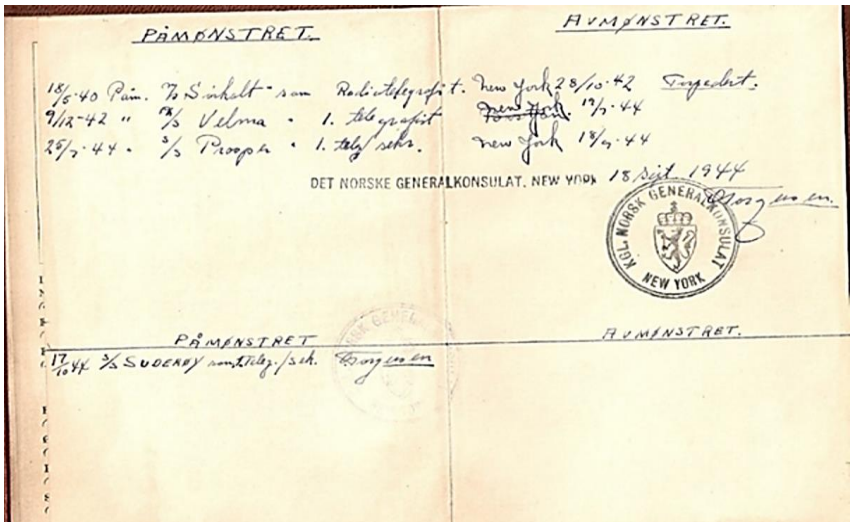 PÅMØNSTRET. AVMØNSTRET.
18/5-40 Påm. som Radiotelegrafist. New York 28/10-42 Torpedert.
9/12-42 " M/S Velma " 1. telegrafist New York. 19/7-44
25/7-44 " S/S Prosper " 1. telg/sekr. New York 18/9-44
DET NORSKE GENERALKONSULAT, NEW YORK 18 Sept. 1944
KGL. NORSK GENERALKONSULAT
NEW YORK
PÅMØNSTRET AVMØNSTRET.
17/10 44 S/S SUDERØY som 1. teleg./sek.